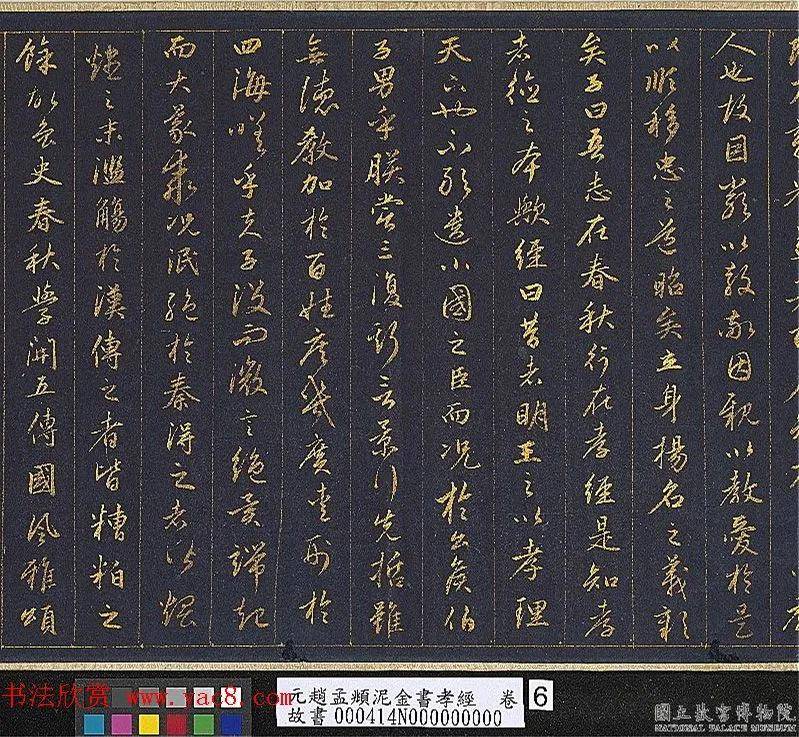 人也故因嚴以教敬因親以教愛於是
以順移忠之道昭矣立身揚名之義彰
矣子曰吾志在春秋行在孝經是知孝
者德之本歟經曰昔者明王之以孝理
天下也不敢遺小國之臣而況於公侯伯
子男乎朕嘗三復斯言景行先哲雖
無德教加於百姓庶幾廣愛刑於
四海嗟乎夫子沒而微言絕異端起
而大義乖況泯絕於秦得之者皆煨
燼之末濫觴於漢傳之者皆糟粕之
餘故魯史春秋學開五傳國風雅頌
书法欣赏 www.yac8.com
元趙孟頫泥金書孝經 卷
故書000414N000000000
6
國立故宮博物院
NATIONAL PALACE MUSEUM